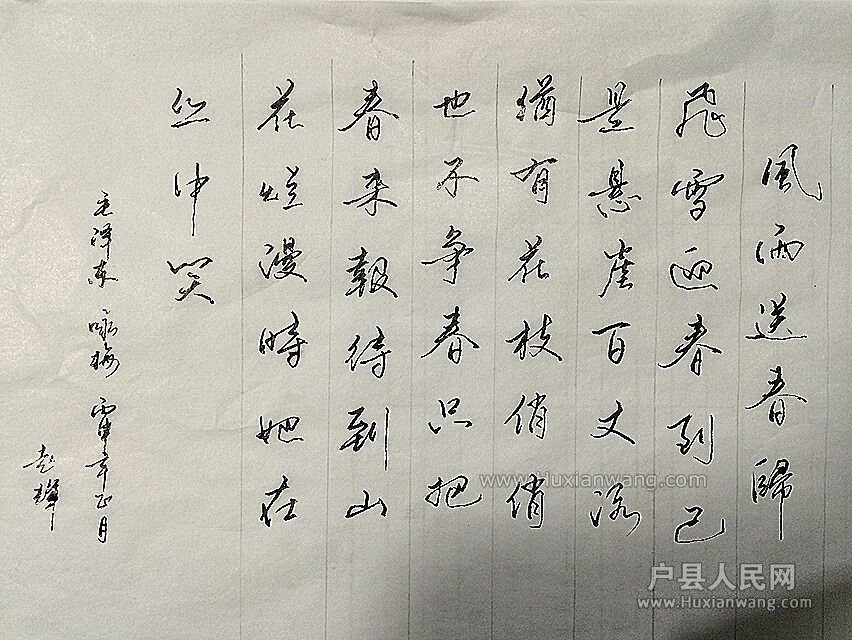 風雨送春歸
飛雪迎春到已
是悬崖百丈冰
猶有花枝俏俏
也不争春只把
春来報待到山
花烂漫時她在
丛中笑
毛泽东 咏梅 丙申年正月
www.Huxianwang.com
户县人民网
www.Huxianwang.com